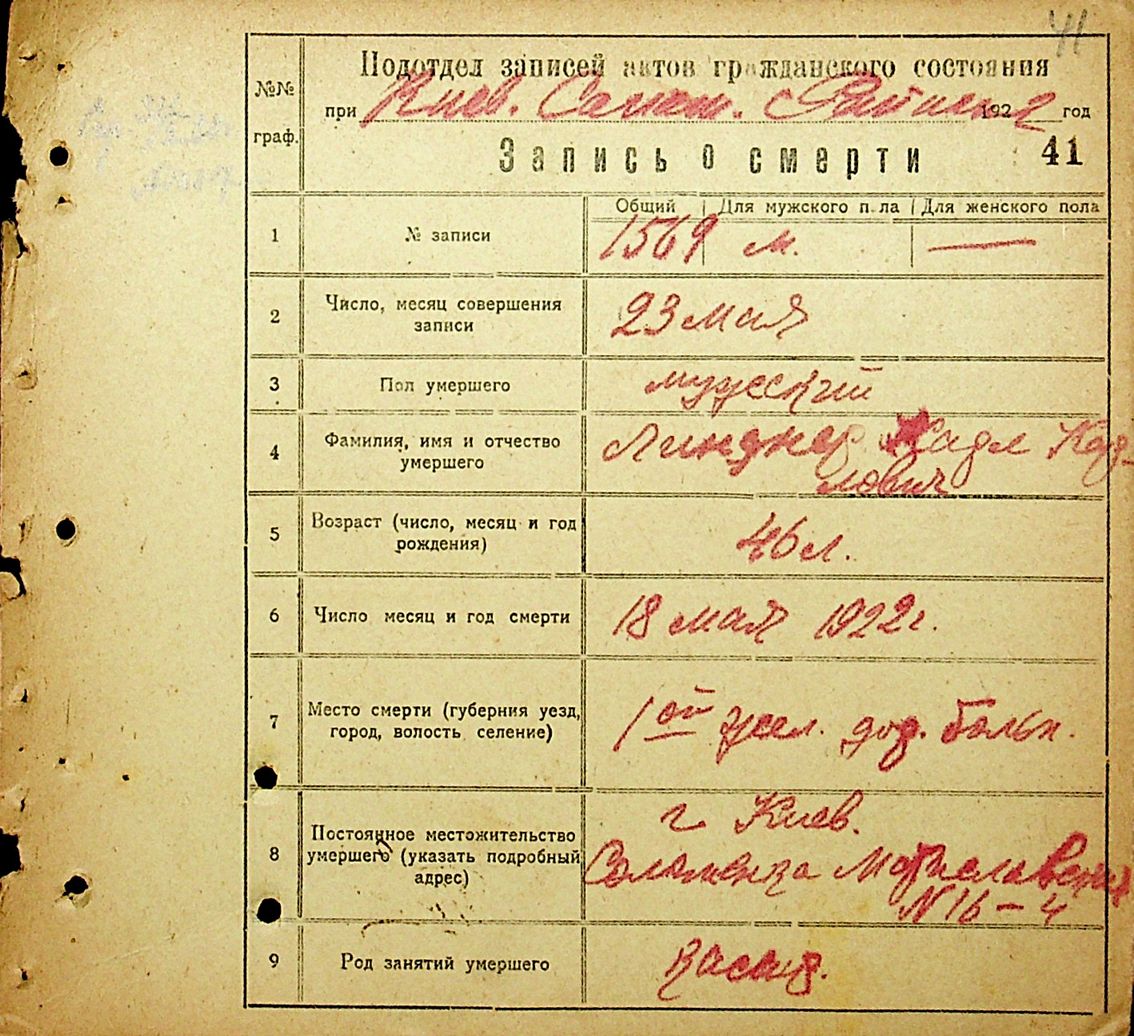 41
№№ граф.
Подотдел записей актов гражданского состояния
при Киев. 1922 год
Запись о смерти 41
Общий Для мужского пола Для женского пола
1 № записи 1569 м. —
2 Число, месяц совершения
записи
23 мая
3 Пол умершего мужский
4 Фамилия, имя и отчество
умершего
Линднер Карл Кар-
лович
5 Возраст (число, месяц и год
рождения)
46 л.
6 Число месяц и год смерти 18 мая 1922 г.
7 Место смерти (губерния уезд,
город, волость селение)
1ой жел. дор. больн.
8 Постоянное местожительство
умершего (указать подробный
адрес)
г Киев.
Соломенка
N 16 – 4
9 Род занятий умершего